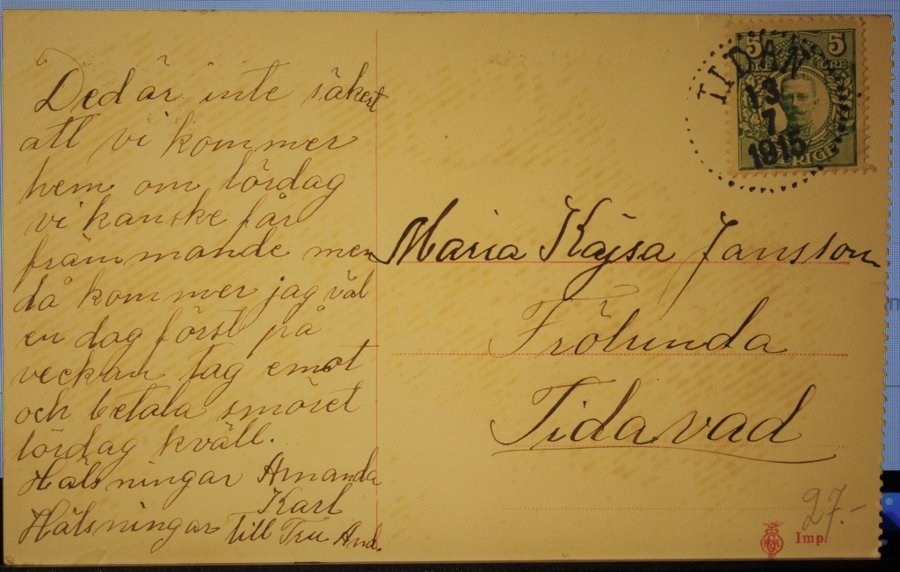 Ded är inte säkert
att vi kommer
hem om lördag
vi kanske får
främmande men
då kommer jag väl
en dag först på
veckan tag emot
och betala smöret
lördag kväll.
Hälsningar Amanda
Karl
Hälsningar till Fru And.
5 5
ÖRE
TIDAN
13
7
1915
SVERIGE
Maria Kajsa Jansson
Frölunda
Tidavad
27.-
Imp.